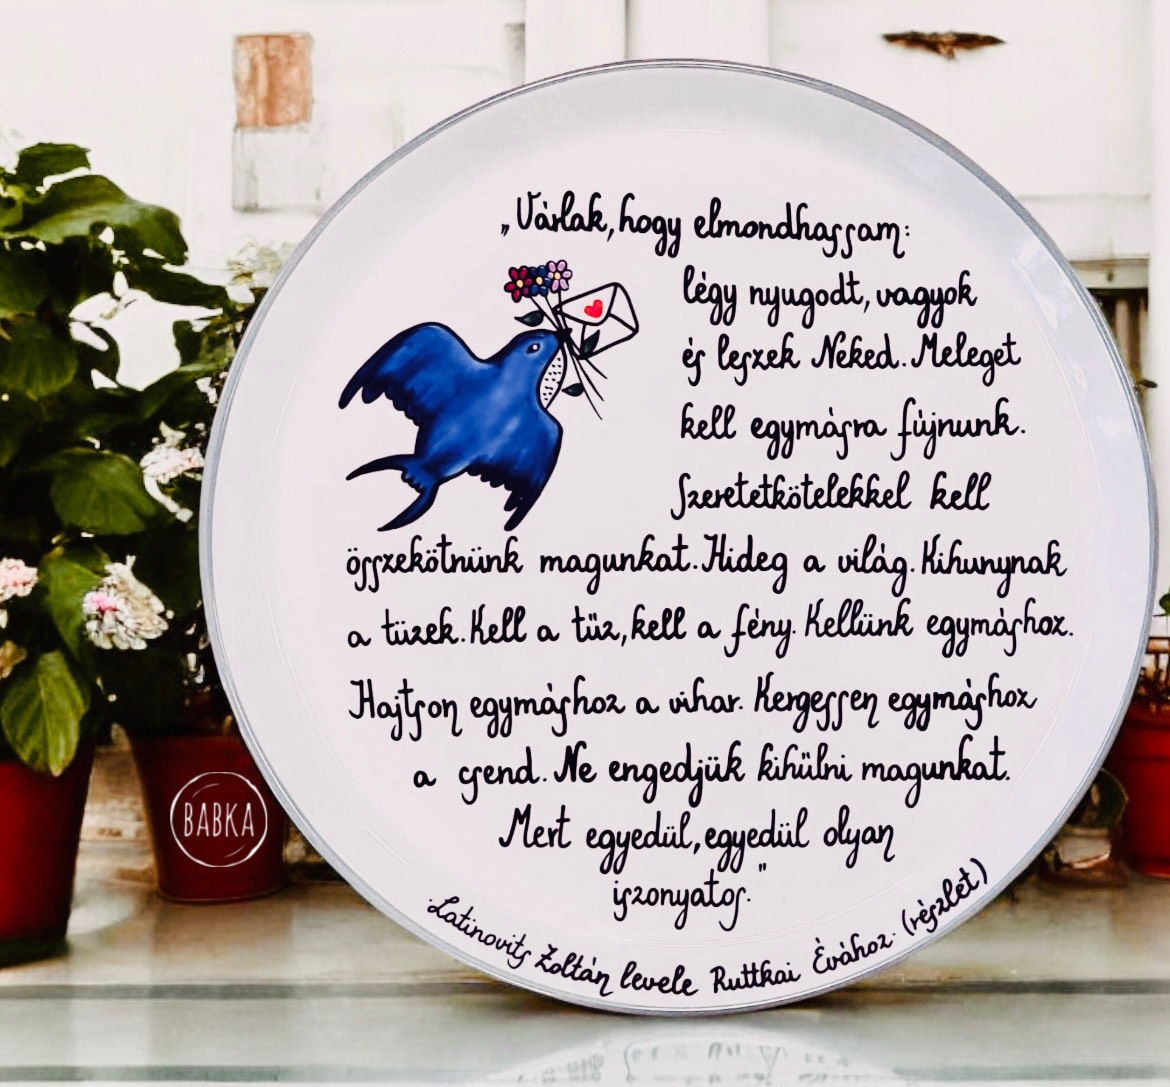 „Várlak, hogy elmondhassam:
légy nyugodt, vagyok
és leszek Neked. Meleget
kell egymásra fújnunk.
Szeretetkötelekkel kell
összekötnünk magunkat. Hideg a világ. Kihunynak
a tüzek. Kell a tűz, kell a fény. Kellünk egymáshoz.
Hajtson egymáshoz a vihar. Kergessen egymáshoz
a csend. Ne engedjük kihűlni magunkat.
Mert egyedül, egyedül olyan
iszonyatos."
Latinovits Zoltán levele Ruttkai Évához. (részlet)
BABKA